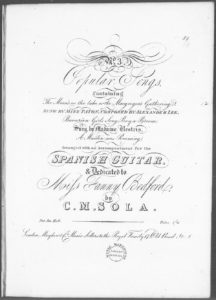 No. 3
Popular Songs,
Containing
The Mountain the Lake or the Macgregors Gathering,
SUNG BY MISS PATON, COMPOSED BY ALEXANDER LEE.
Bavarian Girls Song, Buy a Broom
Sung by Madame Vestris,
&
Arranged with an Accompaniment for the
SPANISH GUITAR,
& Dedicated to
Miss Fanny Bedford,
by
C. M. SOLA.
Ent. Sta. Hall.
Price
London,
Music Sellers to the Royal Family,